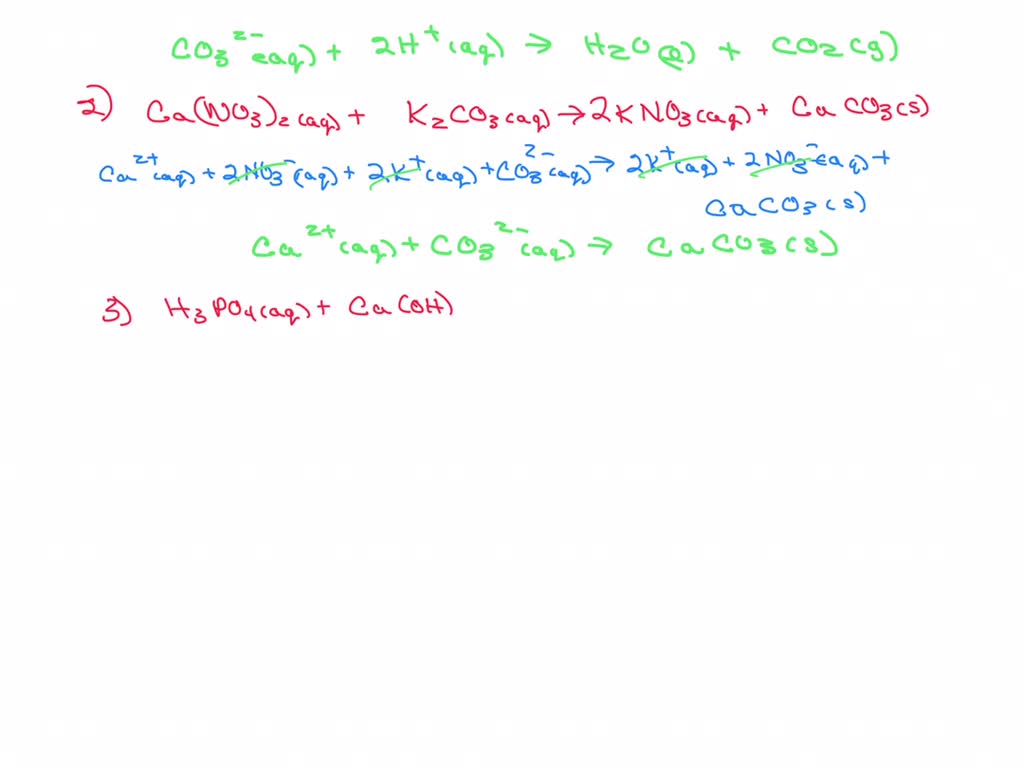 CO₃²⁻(aq) + 2H⁺(aq) → H₂O(l) + CO₂(g)
2) Ca(NO₃)₂(aq) + K₂CO₃(aq) → 2KNO₃(aq) + CaCO₃(s)
Ca²⁺(aq) + 2NO₃⁻(aq) + 2K⁺(aq) + CO₃²⁻(aq) → 2K⁺(aq) + 2NO₃⁻(aq) +
CaCO₃(s)
Ca²⁺(aq) + CO₃²⁻(aq) → CaCO₃(s)
3) H₃PO₄(aq) + Ca(OH)